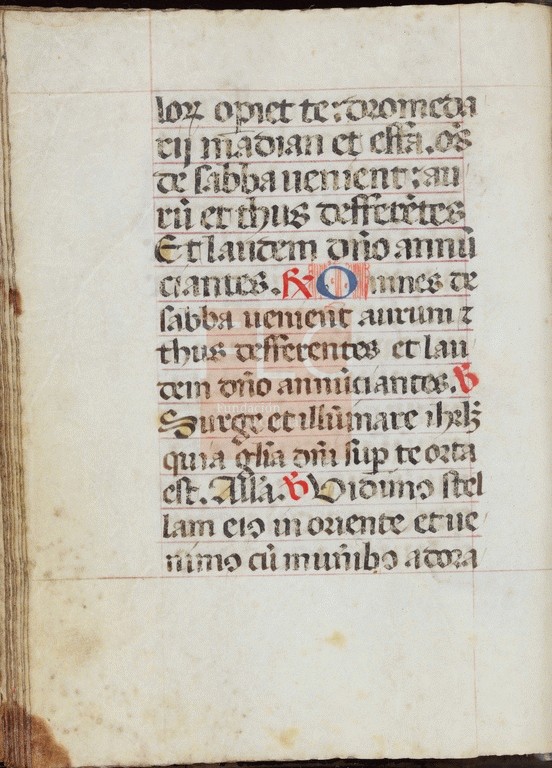 loꝝ opiet te: dromeda
rij madian et effa. os̄
de sabba uenient: au
rū et thus defferētes
Et laudem dn̄o annū
ciantes. ℟ Omnes de
sabba uenient aurum ⁊
thus defferentes et lau
dem dn̄o annūciantes. ℣
Surge et illūmare ihrl̄z
quia gl̄ia dn̄i sup te orta
est. All̄a. ℣ Vidimꝰ stel
lam eiꝰ in oriente et ue
nimꝰ cū munībꝰ adora
Fundación